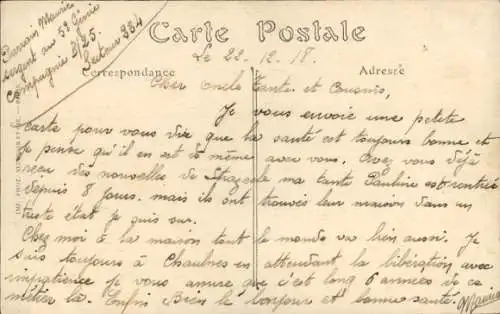 Parrain Maurice
sergent au 5e Génie
Compagnie 8/25.
Secteur 234
Carte Postale
Le 22-12-18.
Correspondance
Adresse
Cher Oncle Tante et Cousins,
Je vous envoie une petite
carte pour vous dire que la santé est toujours bonne et
je pense qu'il en est de même avec vous. Avez vous déjà
reçu des nouvelles de ma tante Pauline est rentrée
depuis 8 jours. mais ils ont trouvés leur maison dans un
triste état je suis sur.
Chez moi à la maison tout le monde va bien aussi. Je
suis toujours à Chaulnes en attendant la libération avec
impatience je vous assure que c'est long 6 années de ce
métier là. Enfin Bien le bonjour et bonne santé. Maurice